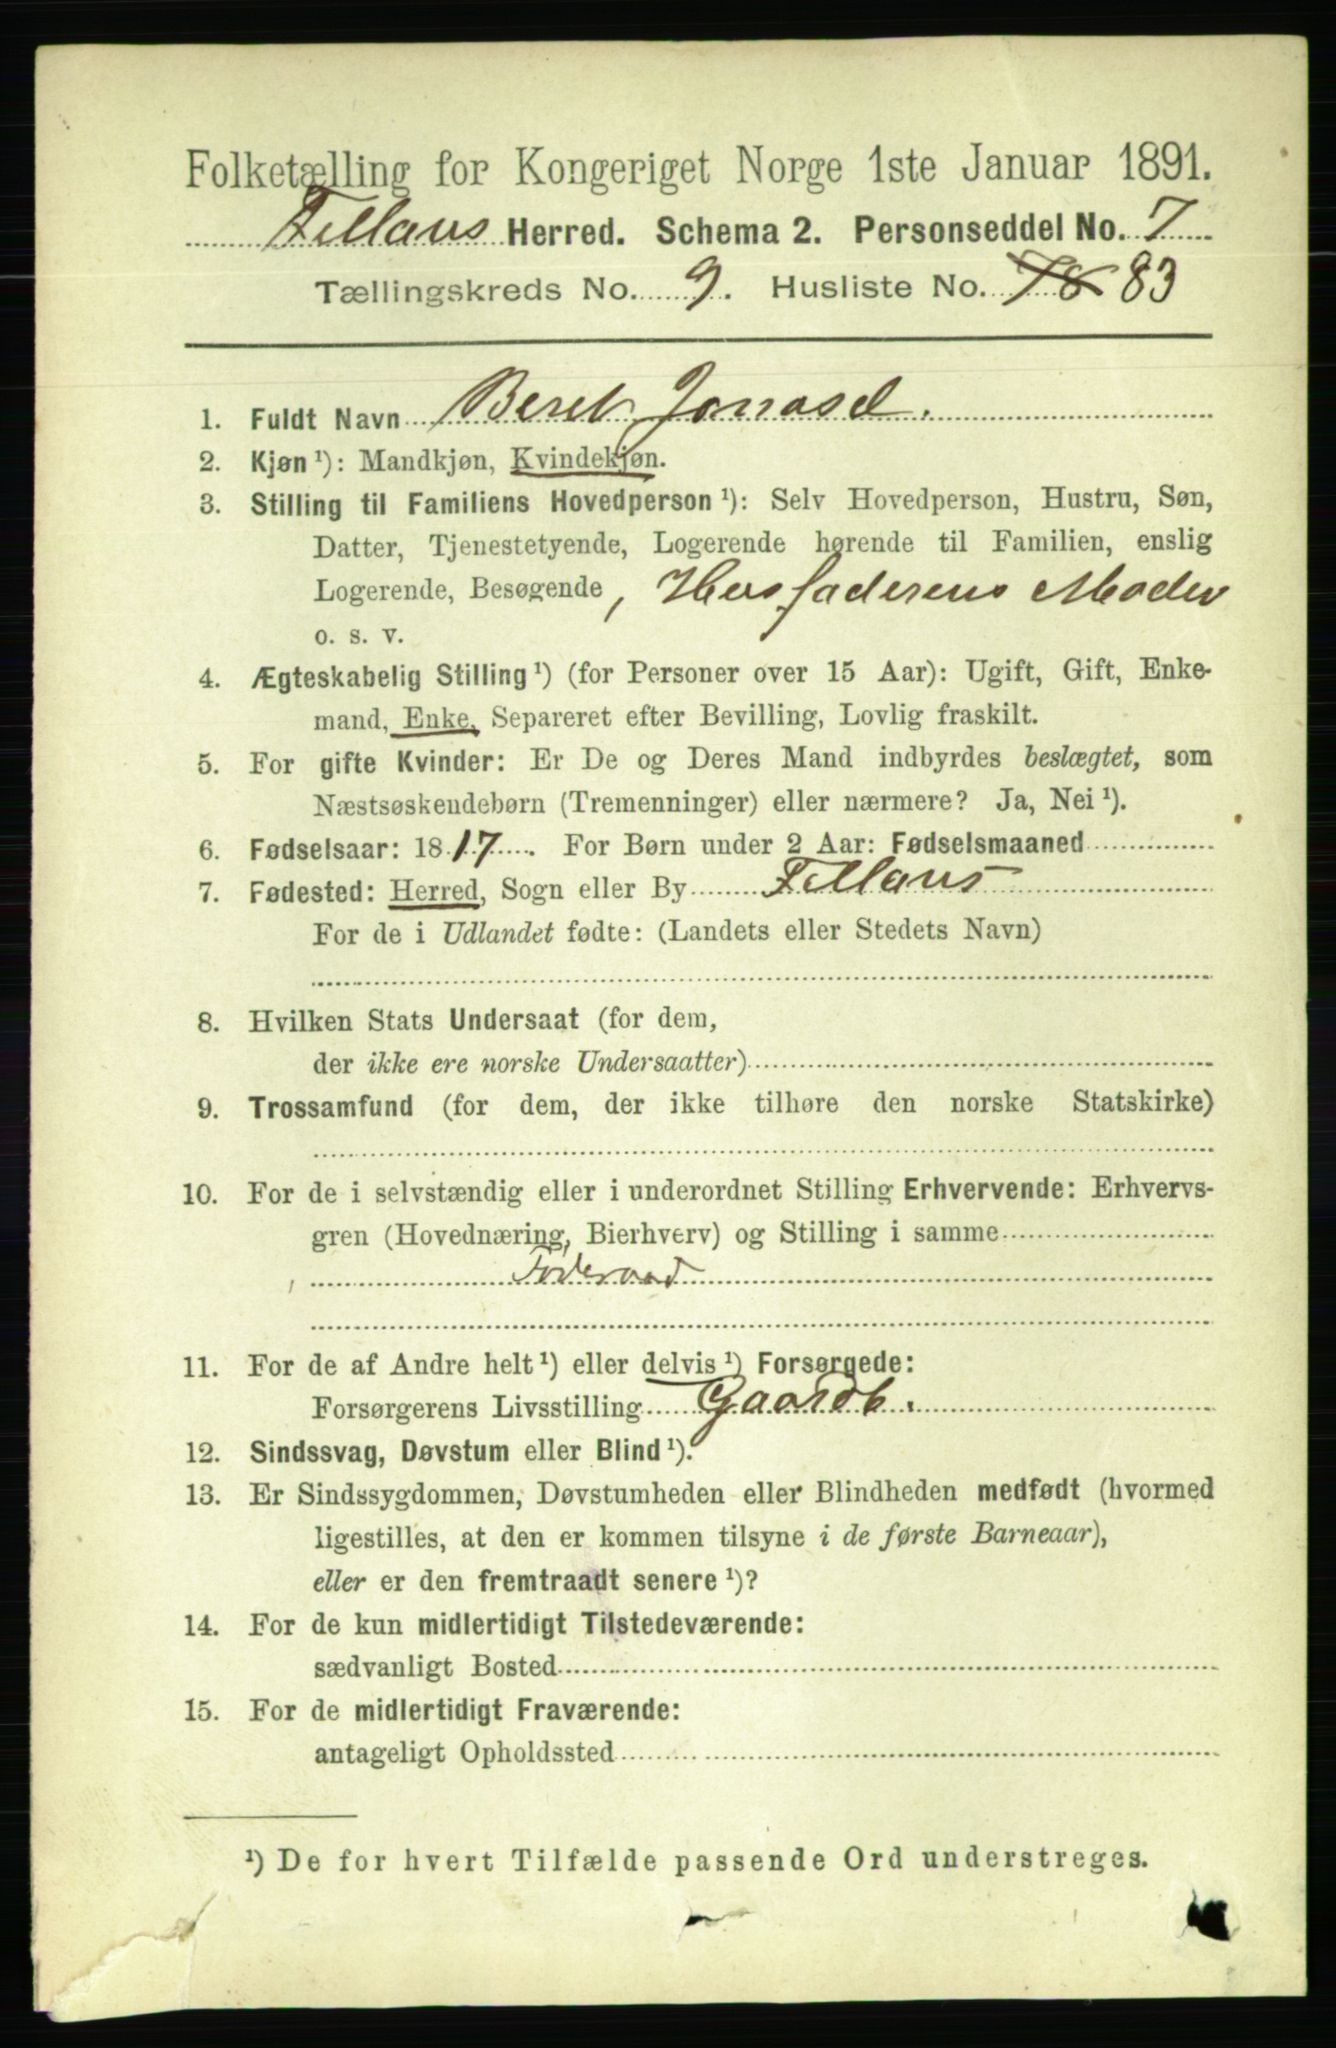 Folketælling for Kongeriget Norge 1ste Januar 1891.
Fillans Herred. Schema 2. Personseddel No. 7
Tællingskreds No. 9. Husliste No. 78 83
1. Fuldt Navn Beret Jonasd.
2. Kjøn¹): Mandkjøn, Kvindekjøn.
3. Stilling til Familiens Hovedperson¹): Selv Hovedperson, Hustru, Søn,
Datter, Tjenestetyende, Logerende hørende til Familien, enslig
Logerende, Besøgende, Husfaderens Moder
o. s. v.
4. Ægteskabelig Stilling¹) (for Personer over 15 Aar): Ugift, Gift, Enke-
mand, Enke, Separeret efter Bevilling, Lovlig fraskilt.
5. For gifte Kvinder: Er De og Deres Mand indbyrdes beslægtet, som
Næstsøskendebørn (Tremenninger) eller nærmere? Ja, Nei¹).
6. Fødselsaar: 1817. For Børn under 2 Aar: Fødselsmaaned
7. Fødested: Herred, Sogn eller By Fillans
For de i Udlandet fødte: (Landets eller Stedets Navn)
8. Hvilken Stats Undersaat (for dem,
der ikke ere norske Undersaatter)
9. Trossamfund (for dem, der ikke tilhøre den norske Statskirke)
10. For de i selvstændig eller i underordnet Stilling Erhvervende: Erhvervs-
gren (Hovednæring, Bierhverv) og Stilling i samme
Foderaad
11. For de af Andre helt¹) eller delvis¹) Forsørgede:
Forsørgerens Livsstilling Gaardb.
12. Sindssvag, Døvstum eller Blind¹).
13. Er Sindssygdommen, Døvstumheden eller Blindheden medfødt (hvormed
ligestilles, at den er kommen tilsyne i de første Barneaar),
eller er den fremtraadt senere¹)?
14. For de kun midlertidigt Tilstedeværende:
sædvanligt Bosted
15. For de midlertidigt Fraværende:
antageligt Opholdssted
¹) De for hvert Tilfælde passende Ord understreges.